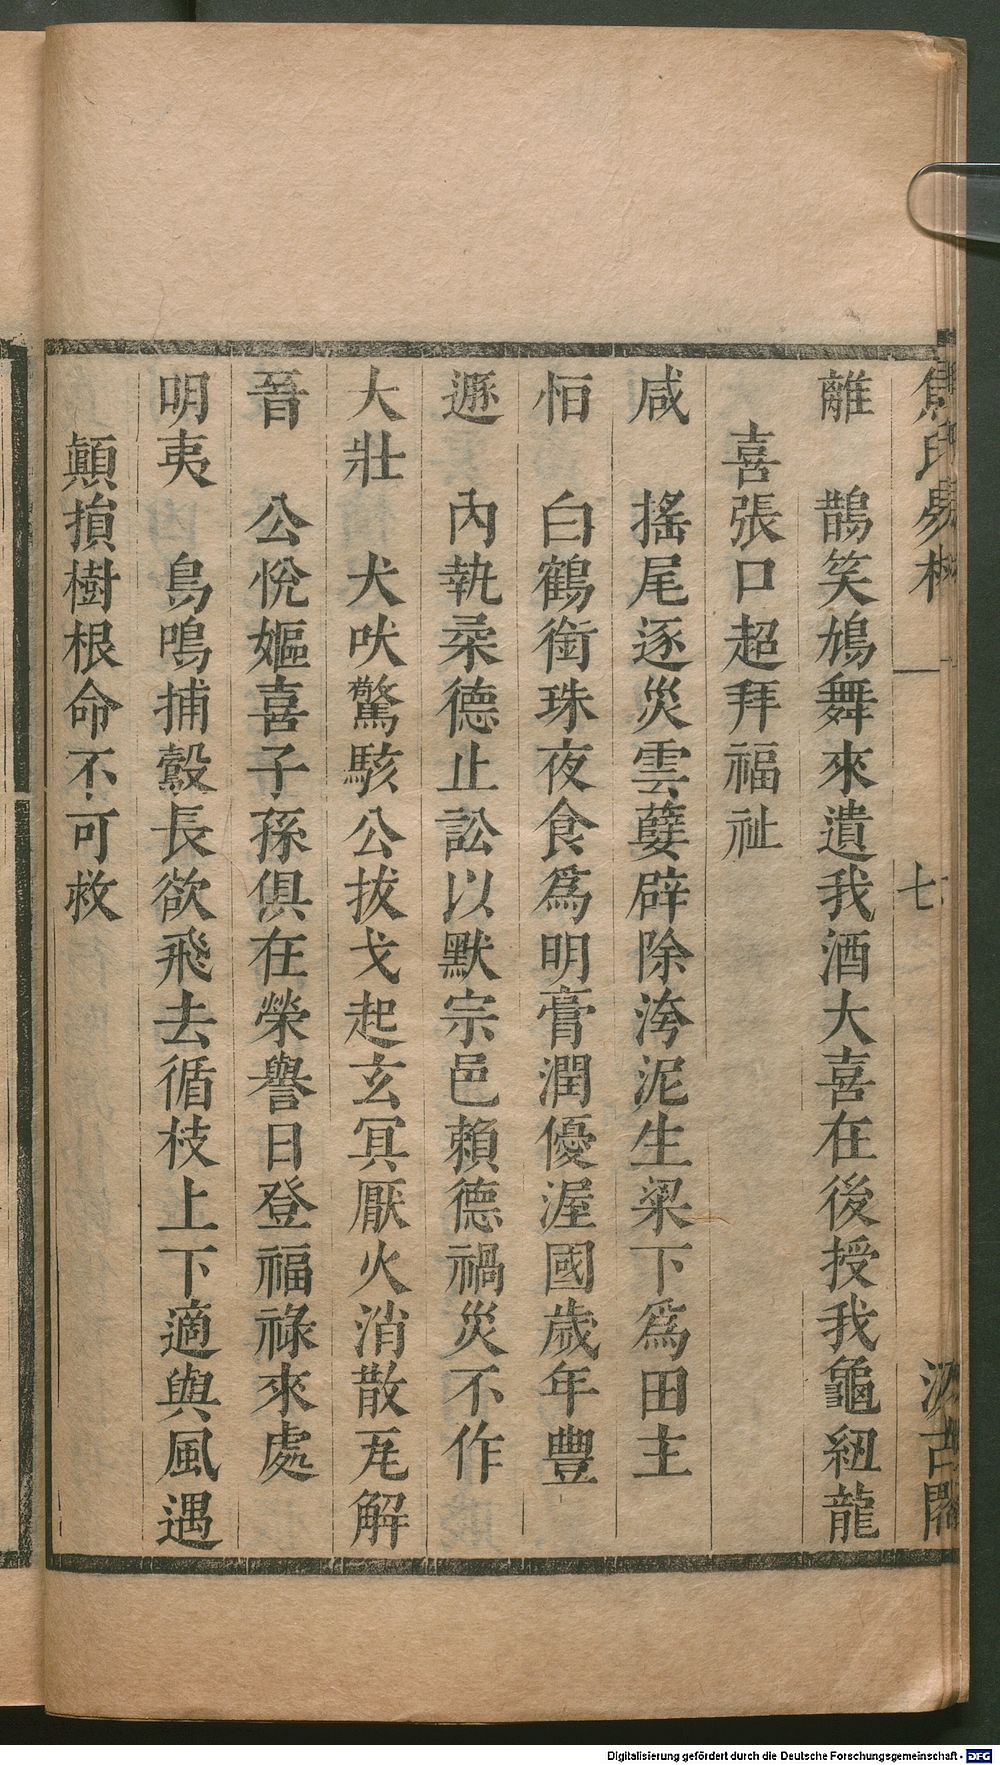 離 鵲笑鳩舞來遺我酒大喜在後授我龜紐龍
喜張口超拜福祉
咸 搖尾逐災雲孽辟除洿泥生梁下爲田主
恒 白鶴銜珠夜食爲明膏潤優渥國歲年豐
遯 內執柔德止訟以默宗邑賴德禍災不作
大壯 犬吠驚駭公拔戈起玄冥厭火消散瓦解
晉 公悅嫗喜子孫俱在榮譽日登福祿來處
明夷 鳥鳴捕鷇長欲飛去循枝上下適與風遇
顛損樹根命不可救
七
汲古閣
Digitalisierung gefördert durch die Deutsche Forschungsgemeinschaft - DFG